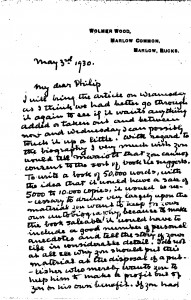 WOLMER WOOD,
MARLOW COMMON,
MARLOW, BUCKS.
May 3rd 1930.
My dear Philip
I will bring the article on Wednesday
as I think we had better go through
it again to see if we want anything
added or taken out and between
now and Wednesday I can possibly
touch it up a little. With regard to
the biography I very much wish you
would tell Marriott that you cannot
consent to the sort of book he suggests.
To write a book of 50,000 words, with
the idea that it would have a sale of
5000 to 10,000 copies, it would be ne-
cessary to draw very largely upon the
material you want to keep for your
own autobiography, because to make
the book saleable it would have to
include a good number of personal
anecdotes and the story of your
life in considerable detail. I do not
at all see why you should put this
material at the disposal of a pub-
lisher who merely wants you to
help him to make a profit out of
you on his own benefit. If you had